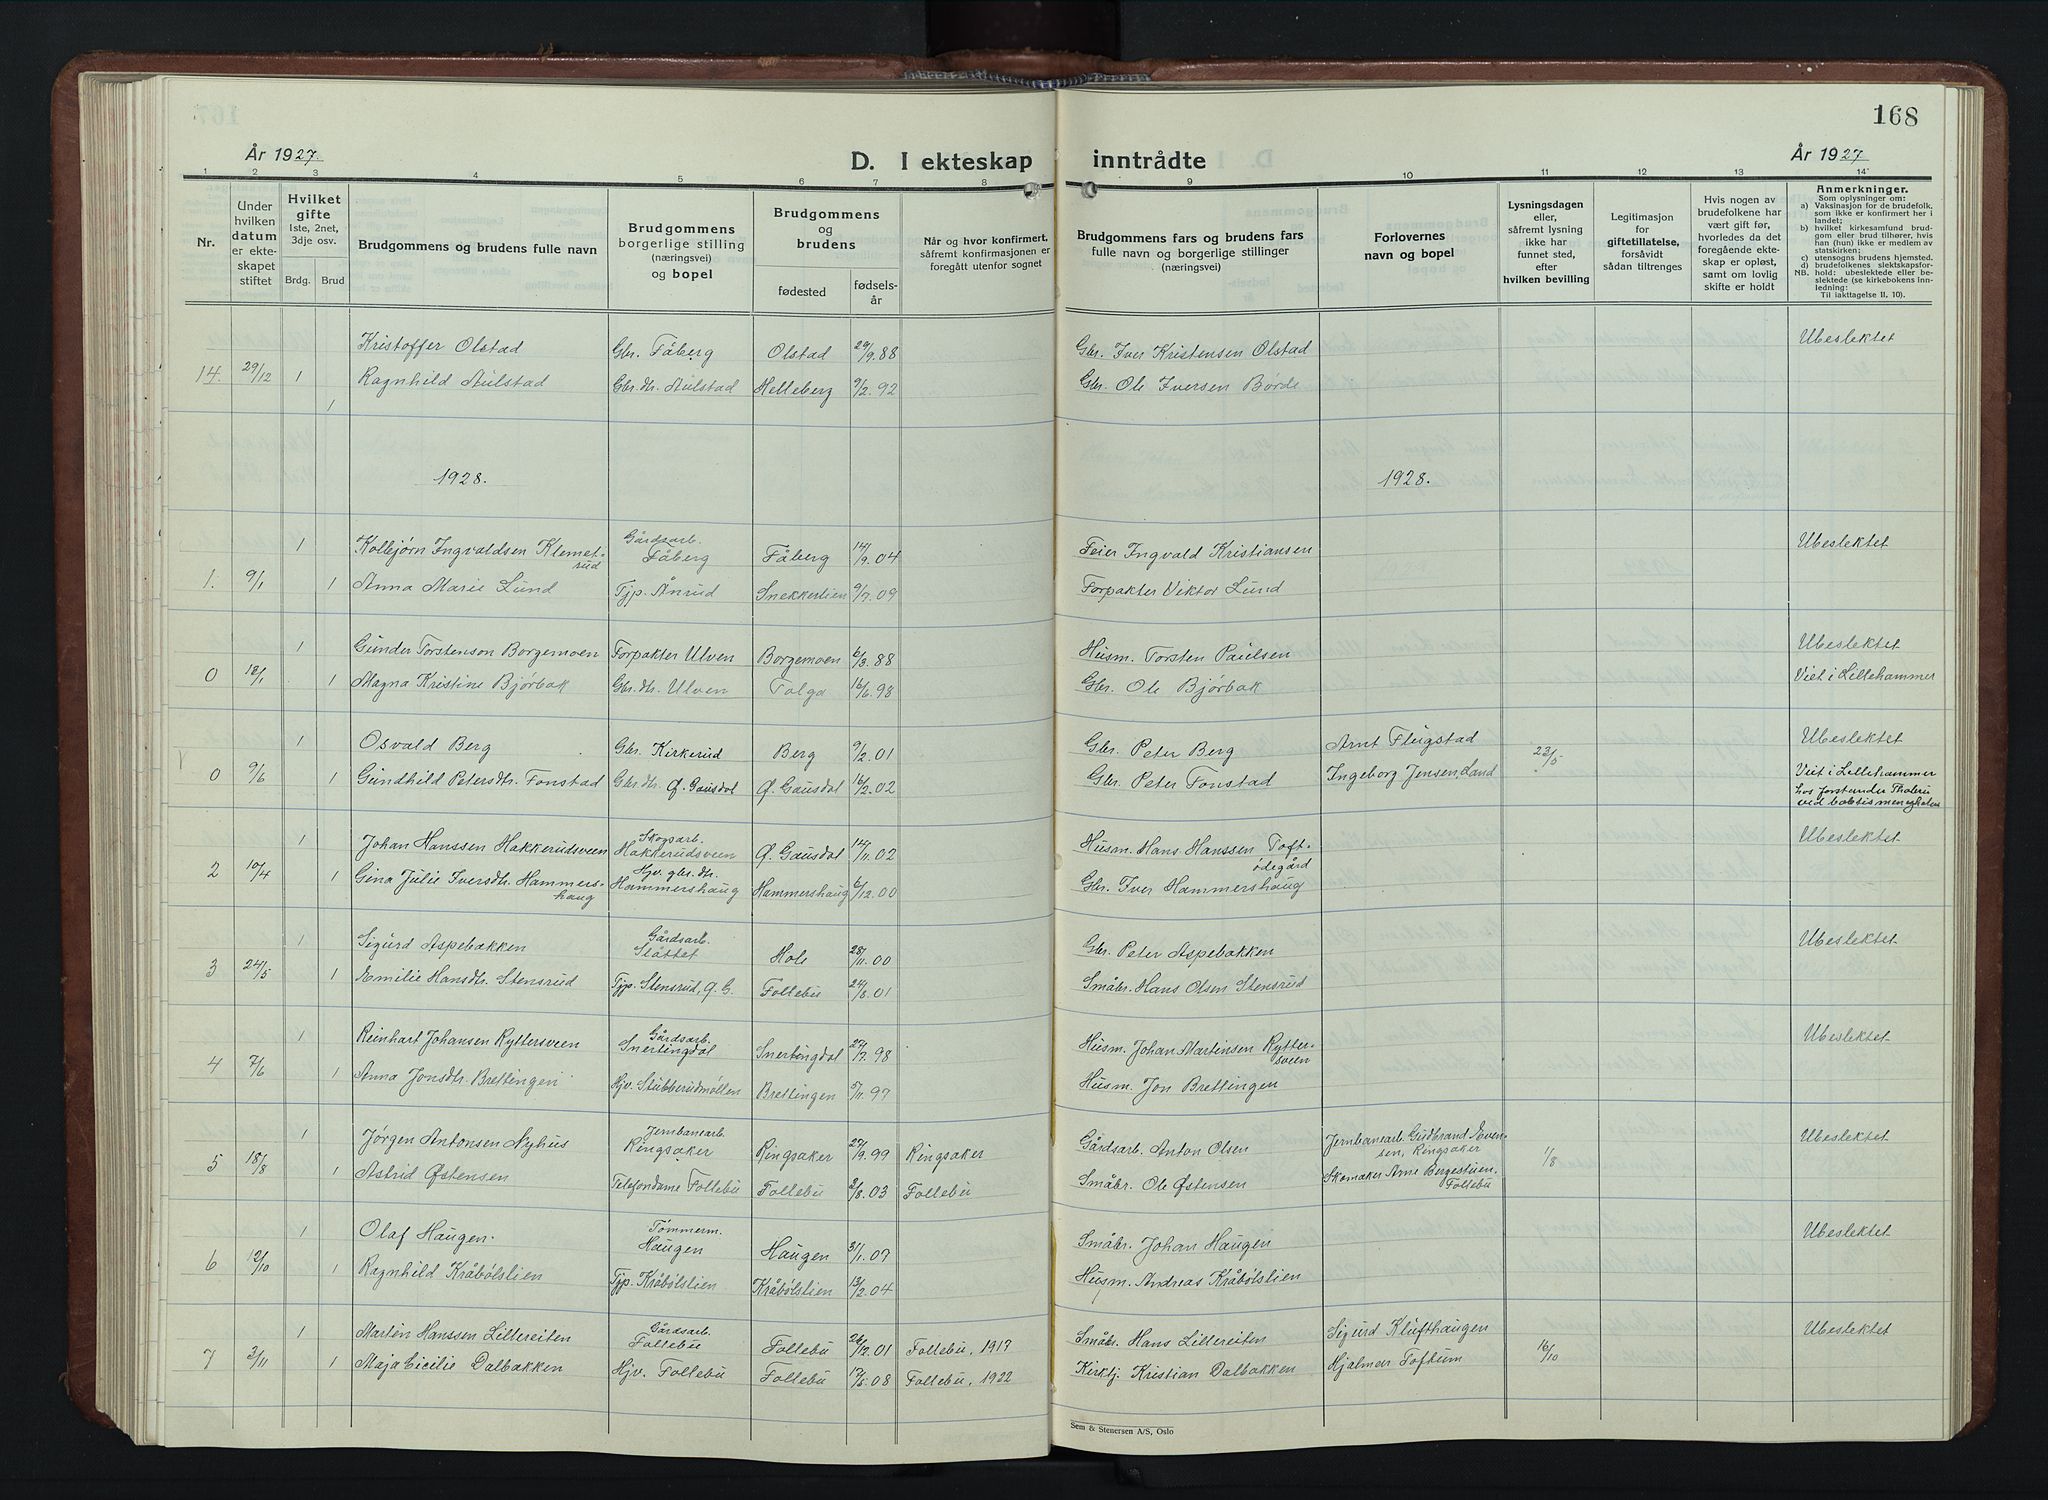 168
År 1927.
D. I ekteskap inntrådte
År 1927
1 2 3 4 5 6 7 8 9 10 11 12 13 14
Nr.
Under hvilken datum er ekteskapet stiftet
Hvilket gifte 1ste, 2net, 3dje osv.
Brdg. Brud
Brudgommens og brudens fulle navn
Brudgommens borgerlige stilling (næringsvei) og bopel
Brudgommens og brudens
fødested
fødselsår
Når og hvor konfirmert, såfremt konfirmasjonen er foregått utenfor sognet
Brudgommens fars og brudens fars fulle navn og borgerlige stillinger (næringsvei)
Forlovernes navn og bopel
Lysningsdagen eller, såfremt lysning ikke har funnet sted, efter hvilken bevilling
Legitimasjon for giftetillatelse, forsåvidt sådan tiltrenges
Hvis nogen av brudefolkene har vært gift før, hvorledes da det foregående ekteskap er opløst, samt om lovlig skifte er holdt
Anmerkninger.
Som oplysninger om:
a) Vaksinasjon for de brudefolk, som ikke er konfirmert her i landet;
b) hvilket kirkesamfund brudgom eller brud tilhører, hvis han (hun) ikke er medlem av statskirken;
c) utensogns brudens hjemsted.
d) brudefolkenes slektskapsforhold: ubeslektede eller beslektede (se kirkebokens innledning:
NB. Til iakttagelse 11, 10).
Kristoffer Olstad Gbr. Fåberg Olstad 29/9.88 Gbr. Iver Kristensen Olstad Ubeslektet
14. 29/12 1 Ragnhild Aulstad Gbr.dtr. Aulstad Helleberg 9/2.92 Gbr. Ole Iversen Börde
1
1928. 1928.
1 Kolbjørn Ingvaldsen Klemetrud Gårdsarb. Fåberg Fåberg 14/9.04 Feier Ingvald Kristiansen Ubeslektet
1. 9/1 1 Anna Marie Lund Tjp. Ånrud Snekkerlien 9/7.09 Forpakter Viktor Lund
1 Gunder Torstenson Borgemoen Forpakter Ulven Borgemoen 6/3.88 Husm. Torsten Paulsen Ubeslektet
0 18/1 1 Magna Kristine Bjørbak Gbr.dtr. Ulven Tolga 16/6.98 Gbr. Ole Bjørbak Viet i Lillehammer
1 Osvald Berg Gbr. Kirkerud Berg 9/2.01 Gbr. Peter Berg Arnt Flugstad 23/5 Ubeslektet
0 9/6 1 Gundhild Petersdtr. Fonstad Gbr.dtr. Ø. Gausdal Ø. Gausdal 16/2.02 Gbr. Peter Fonstad Ingeborg Jensen, Land Viet i Lillehammer
hos forstander
1 Johan Hanssen Hakkerudsveen Skogsarb. Hakkerudsveen Ø. Gausdal 14/11.02 Husm. Hans Hanssen Toftødegård Ubeslektet
2 10/4 1 Gina Julie Iversdtr. Hammershaug Hjv. gbr.dtr. Hammershaug Hammershaug 6/12.00 Gbr. Iver Hammershaug
1 Sigurd Aspebakken Gårdsarb. Slåttet Hole 28/11.00 Gbr. Peter Aspebakken Ubeslektet
3 24/5 1 Emilie Hansdtr. Stensrud Tjp. Stensrud, Ø. G. Follebu 24/8.01 Småbr. Hans Olsen Stensrud
1 Reinhart Johansen Ryttersveen Gårdsarb. Snertingdal Snertingdal 27/2.98 Husm. Johan Martinsen Ryttersveen Ubeslektet
4 7/6 1 Anna Jonsdtr. Brettingen Hjv. Stubberudmøllen Brettingen 5/11.97 Husm. Jon Brettingen
1 Jørgen Antonsen Nyhus Jernbanearb. Ringsaker Ringsaker 27/9.99 Ringsaker Gårdsarb. Anton Olsen Jernbanearb. Gudbrand Evensen, Ringsaker 1/8 Ubeslektet
5 18/8 1 Astrid Østensen Telefondame Follebu Follebu 2/8.03 Follebu Småbr. Ole Østensen Skomaker Arne Bergestuen, Follebu
1 Olaf Haugen Tømmerm. Haugen Haugen 31/1.07 Småbr. Johan Haugen Ubeslektet
6 12/10 1 Ragnhild Kråbølslien Tjp. Kråbølslien Kråbølslien 13/2.04 Husm. Andreas Kråbølslien
1 Martin Hanssen Lillereiten Gårdsarb. Follebu Follebu 26/12.01 Follebu, 1917 Småbr. Hans Lillereiten Sigurd Klufthaugen 16/10 Ubeslektet
7 3/11 1 Maja Cicilie Dalbakken Hjv. Follebu Follebu 17/5.08 Follebu, 1922 Kirktj. Kristian Dalbakken Hjalmar Toftum
Sem & Stenersen A/S, Oslo